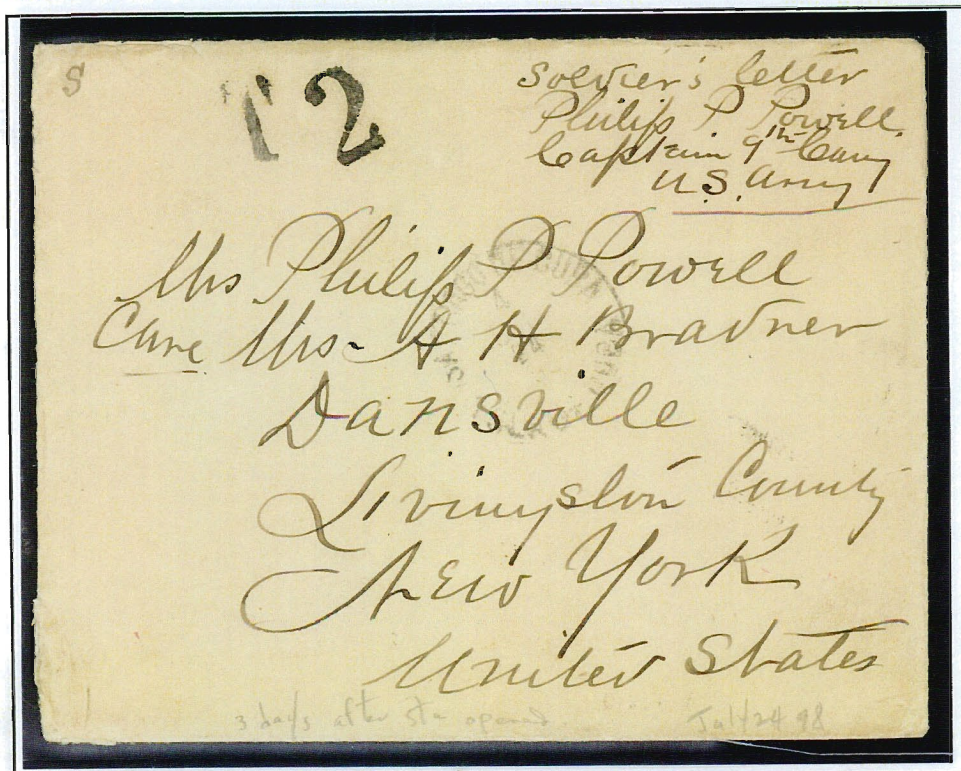 S
T 2
Soldier's letter
Philip P Powell.
Captain 9th Cavy
U.S. Army
Mrs Philip P Powell
Care Mrs- A H Bradner
Dansville
Livingston County
New York
United States
3 days after stn opened
July 24 98
CUBA